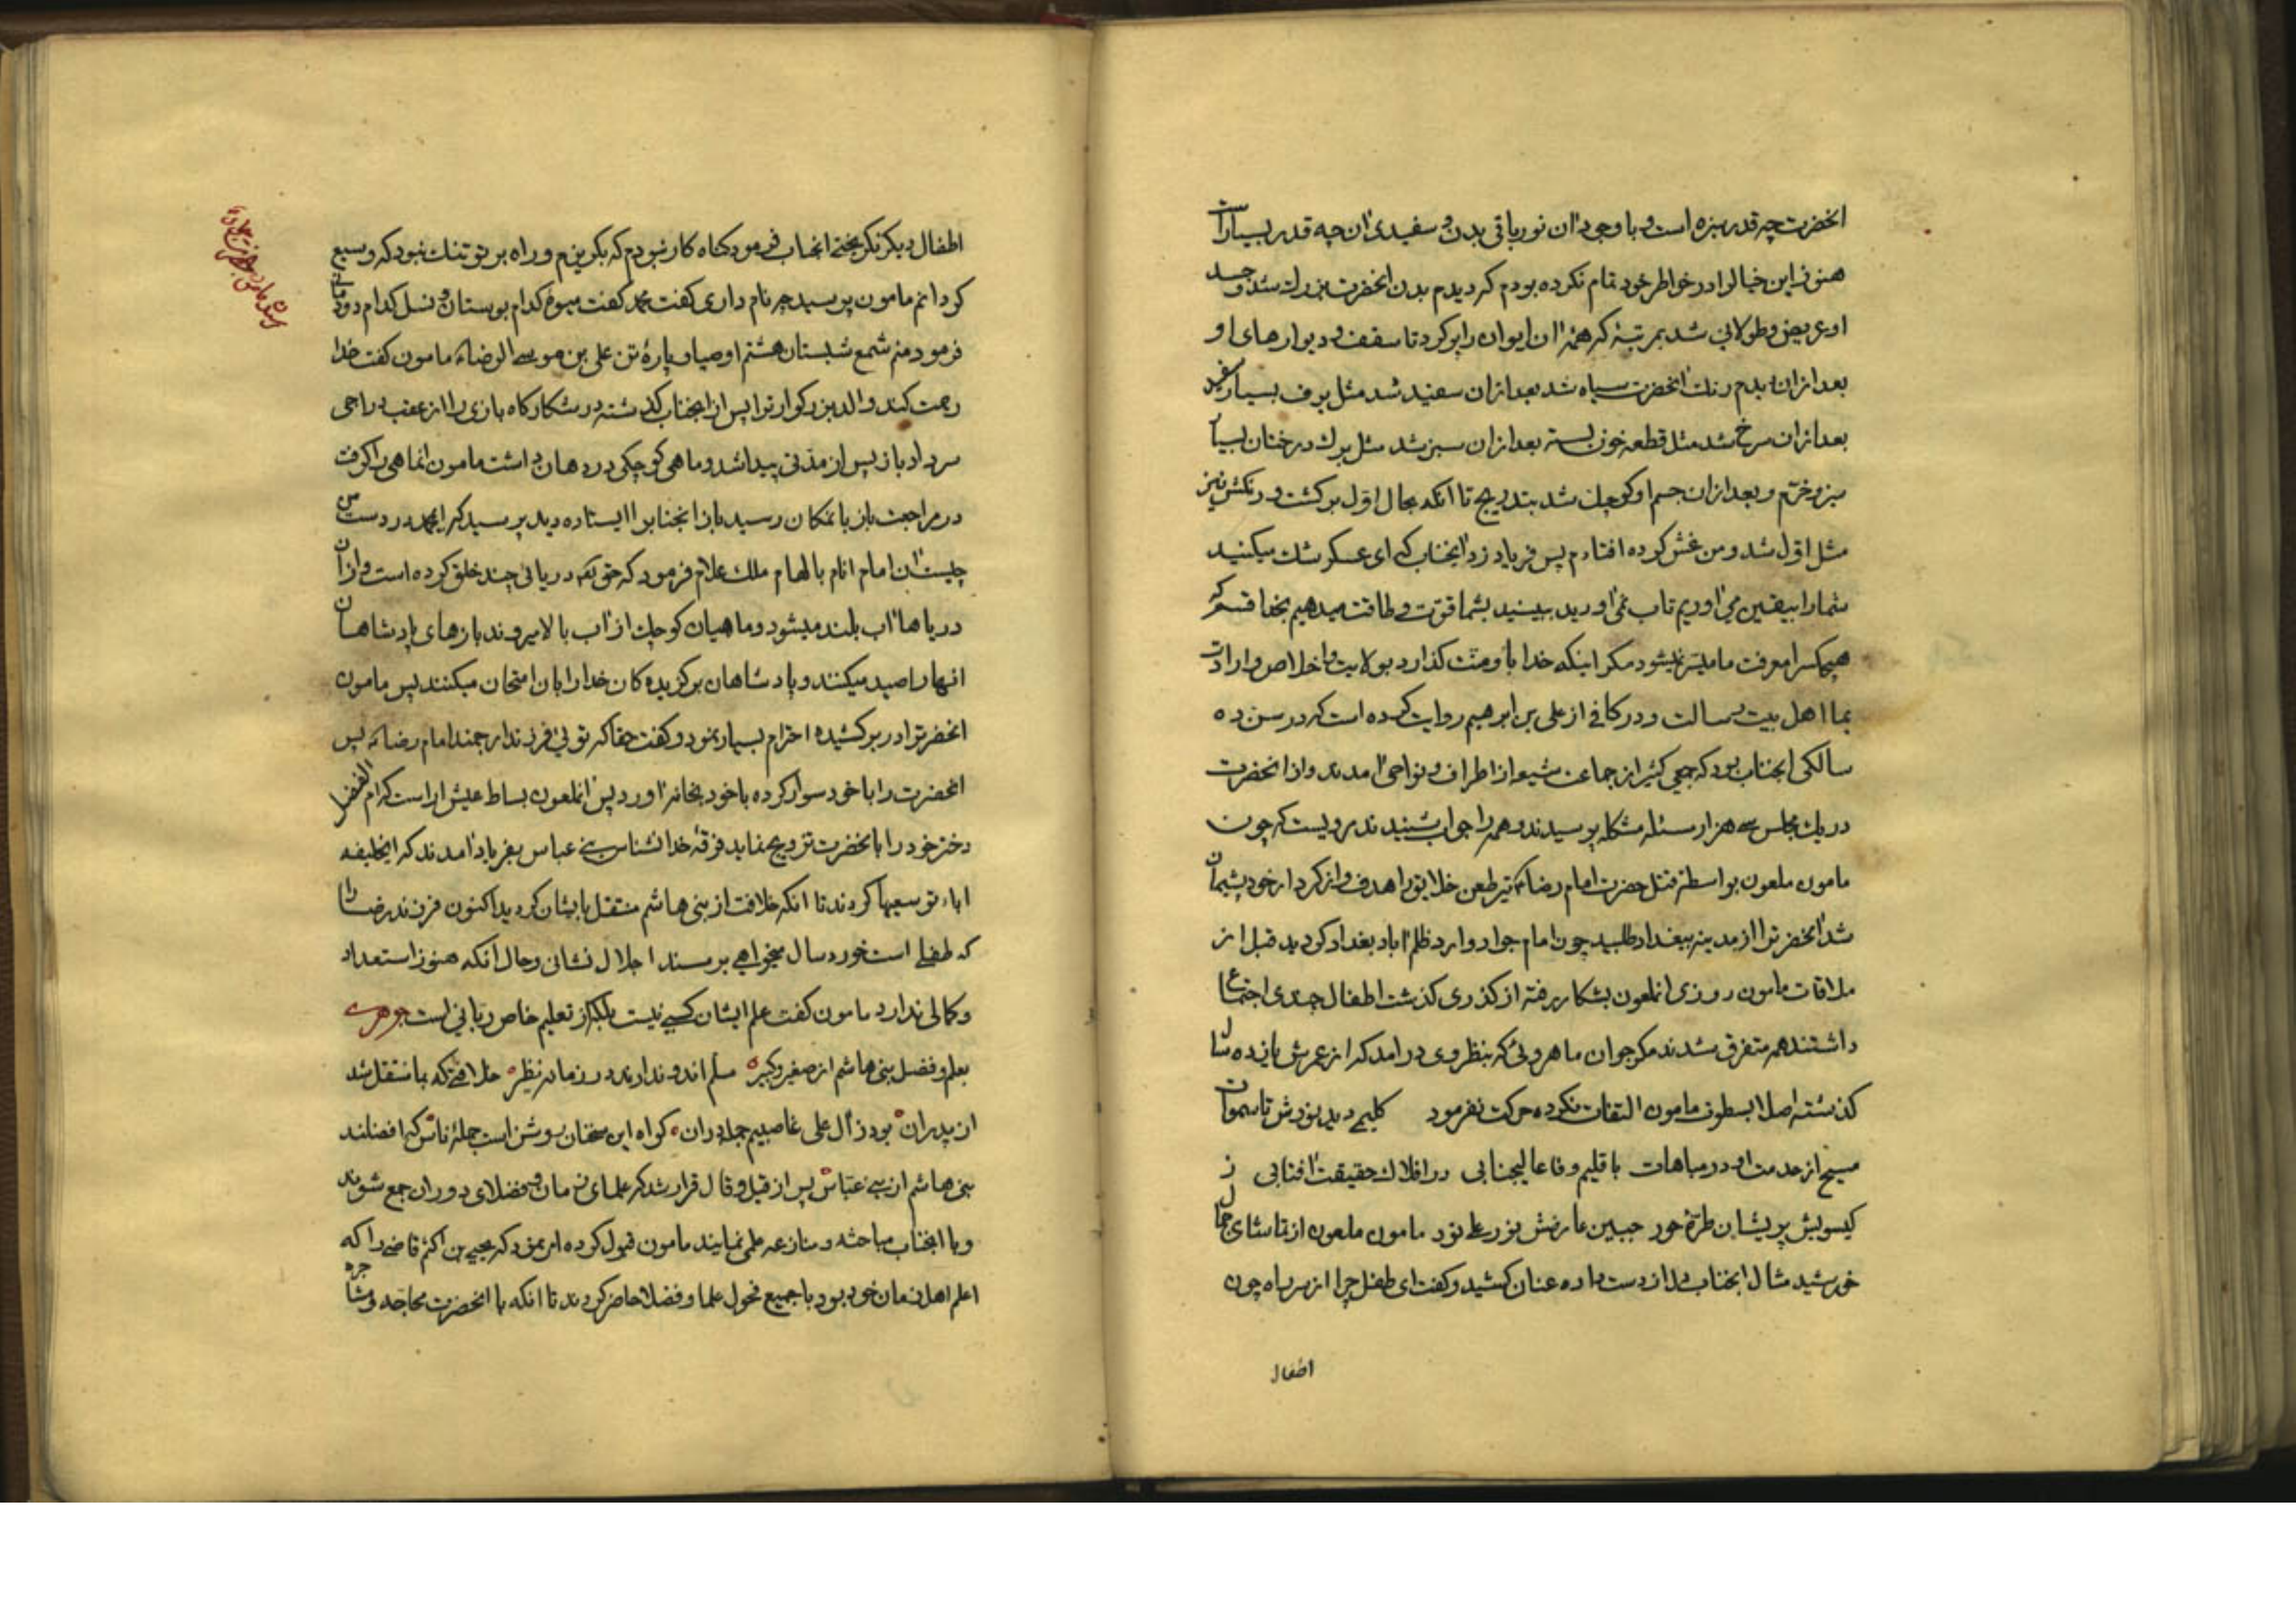 انحضرت چه قدر سبزه است و با وجود ان نور باقی بدن و سفیدی ان چه قدر بسیار است
هنوز این خیال را در خواطر خود تمام نکرده بودم که دیدم بدن انحضرت بزرك شد و جسد
او عریض و طولانی شد بمرتبهٔ که همهٔ ان ایوان را پر کرد تا سقف و دیوارهای او
بعد ازان دیدم رنك انحضرت سیاه شد بعد ازان سفید شد مثل برف بسیار سفید
بعد ازان سرخ شد مثل قطعه خون بسته بعد ازان سبز شد مثل برك درختان بسیار
سبز و خرم و بعد ازان جسم او کوچك شد بتدریج تا انکه بحال اول برکشت و رنکش نیز
مثل اول شد و من غش کرده افتادم پس فریاد زد انجناب که ای عسکر شك میکنید
شما را بیقین می اوریم تاب نمی اورید ببینید بشما قوت و طاقت میدهیم بخدا قسم که
هیچکس را معرفت ما میسر نمیشود مکر اینکه خدا باو منت کذارد بولایت و اخلاص و ارادت
بما اهل بیت رسالت و در کافی از علی بن ابرهیم روایت کرده است که در سن ده
سالکی انجناب بود که جمعی کثیر از جماعت شیعه از اطراف و نواحی امدند و از انحضرت
در یك مجلس سه هزار مسئله مشکله پرسیدند و همه را جواب شنیدند مرویست که چون
مامون ملعون بواسطهٔ قتل حضرت امام رضا تیر طعن خلایق را هدف و از کردار خود پشیمان
شد انحضرترا از مدینه ببغداد طلبید چون امام جواد وارد ظلم اباد بغداد کردید قبل از
ملاقات مامون روزی انملعون بشکار رفته از کذری کذشت اطفال چندی اجتماع
داشتند همه متفرق شدند مکر جوان ماهروئی که بنظر وی درامد که از عمرش یازده سال
کذشته اصلا بسطوت مامون التفات نکرده حرکت نفرمود کلیمی دید نورش تا سموات
مسیح از خدمت او در مباهات باقلیم وفا عالیجنابی در افلاك حقیقت افتابی ز
کیسویش پریشان طرهٔ حور جبین عارضش نور علی نور مامون ملعون از تماشای جمال
خورشید مثال انجناب دل از دست داده عنان کشید و کفت ای طفل چرا از سر راه چون
اطفال
اطفال دیکر نکریختی انجناب فرمود کناه کار نبودم که بکریزم و راه بر تو تنك نبود که وسیع
کردانم مامون پرسید چه نام داری کفت محمد کفت میوهٔ کدام بوستان و نسل کدام دودمانی
فرمود منم شمع شبستان هشتم اوصیا و پارهٔ تن علی بن موسی الرضا مامون کفت خدا
رحمت کند والد بزرکوار ترا پس از انجناب کذشته در شکارکاه بازی را از عقب دراجی
سر داد باز پس از مدتی پیدا شد و ماهی کوچکی در دهان داشت مامون انماهی را کرفت
در مراجعت باز بانمکان رسید باز انجنابرا ایستاده دید پرسید که ایمحمد در دست من
چیست ان امام انام بالهام ملك علام فرمود که حق تعه دریائی چند خلق کرده است و از ان
دریاها اب بلند میشود و ماهیان کوچك از اب بالا میروند بازهای پادشاهان
انها را صید میکنند و پادشاهان برکزیده کان خدا را بان امتحان میکنند پس مامون
انحضرترا در بر کشیده احترام بسیار نمود و کفت حقا که توئی فرزند ارجمند امام رضا پس
انحضرت را با خود سوار کرده با خود بخانه اورد پس انملعون بساط عیش اراست که ام الفضل
دختر خود را بانحضرت تزویج نماید فرقهٔ خدا نشناس بنی عباس بفریاد امدند که ایخلیفه
اباء تو سعیها کردند تا انکه خلافت از بنی هاشم منتقل بایشان کردید اکنون فرزند رضا را
که طفلی است خورد سال میخواهی بر مسند اجلال نشانی و حال انکه هنوز استعداد
و کمالی ندارد مامون کفت علم ایشان کسبی نیست بلکه از تعلیم خاص ربانی است جوهری
بعلم و فضل بنی هاشم از صغیر و کبیر مسلم اند و ندارند در زمانه نظیر خلافتی که بما منتقل شد
از پدران بود ز ال علی غاصبیم جملهٔ ران کواه این سخنان روشن است جملهٔ ناس که افضلند
بنی هاشم از بنی عباس پس از قیل و قال قرار شد که علمای زمان و فضلای دوران جمع شوند
و با انجناب مباحثه و منازعه علمی نمایند مامون قبول کرده امر نمود که یحیی بن اکثم قاضی را که
اعلم اهل زمان خود بود با جمیع فحول علما و فضلا حاضر کردند تا انکه با انحضرت محاجه و مشاجره